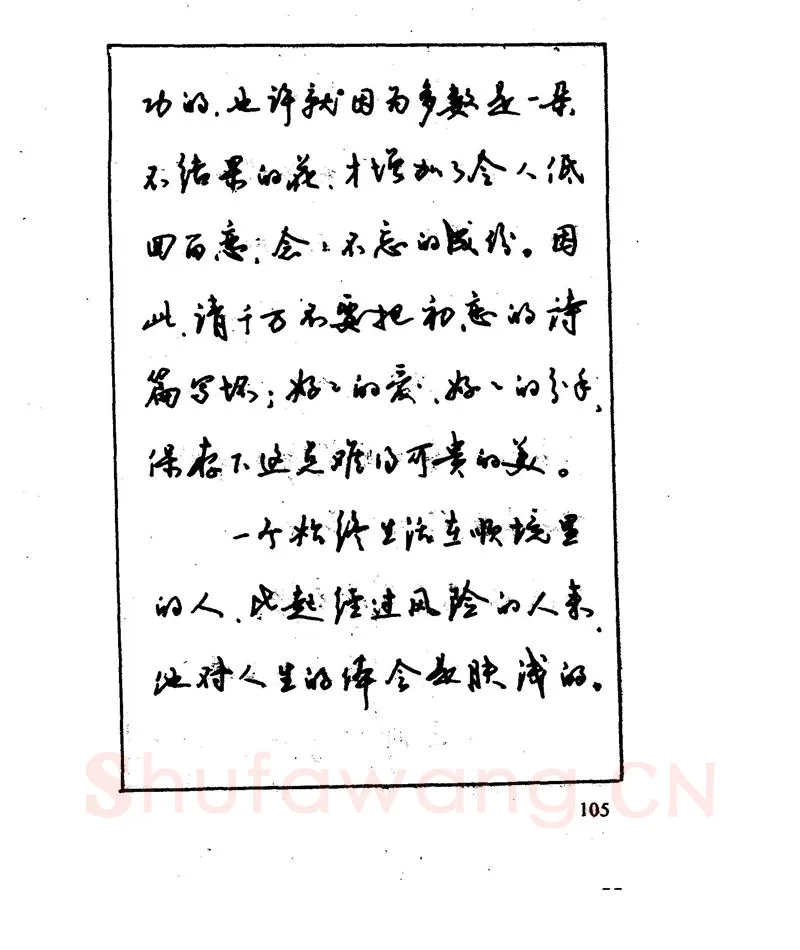 功的,也许就因为多数是一朵
不结果的花,才增加了令人低
回百恋,念々不忘的成份。因
此,请千万不要把初恋的诗
篇写坏;好々的爱,好々的分手,
保存下这点难得可贵的美。
一个始终生活在顺境里
的人,比起经过风险的人来,
他对人生的体会是肤浅的。
Shufawang.CN
105